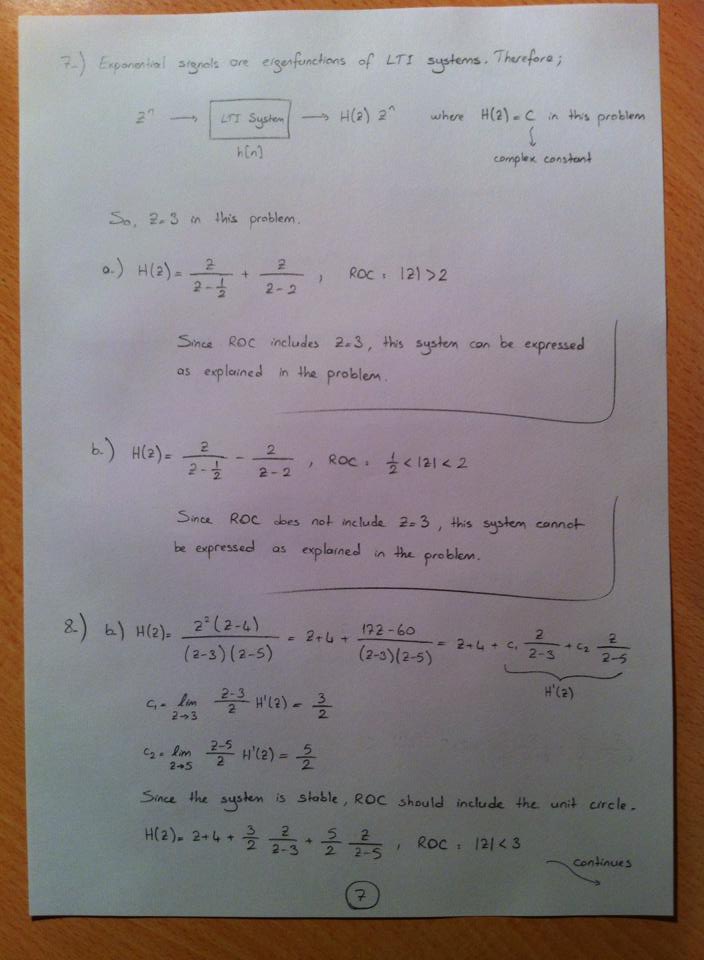 7-) Exponential signals are eigenfunctions of LTI systems. Therefore;
zⁿ → LTI System → H(z) zⁿ where H(z) = C in this problem
h[n]
complex constant
So, z=3 in this problem.
a-) H(z) = z/(z - 1/2) + z/(z-2) , ROC : |z| > 2
Since ROC includes z=3, this system can be expressed
as explained in the problem.
b-) H(z) = z/(z - 1/2) - z/(z-2) , ROC : 1/2 < |z| < 2
Since ROC does not include z=3, this system cannot
be expressed as explained in the problem.
8-) b) H(z) = z²(z-4)/((z-3)(z-5)) = z+4 + (17z-60)/((z-3)(z-5)) = z+4 + c₁ z/(z-3) + c₂ z/(z-5)
H'(z)
c₁ = lim z→3 (z-3)/z H'(z) = 3/2
c₂ = lim z→5 (z-5)/z H'(z) = 5/2
Since the system is stable, ROC should include the unit circle.
H(z) = z+4 + 3/2 z/(z-3) + 5/2 z/(z-5) , ROC : |z| < 3
continues
7